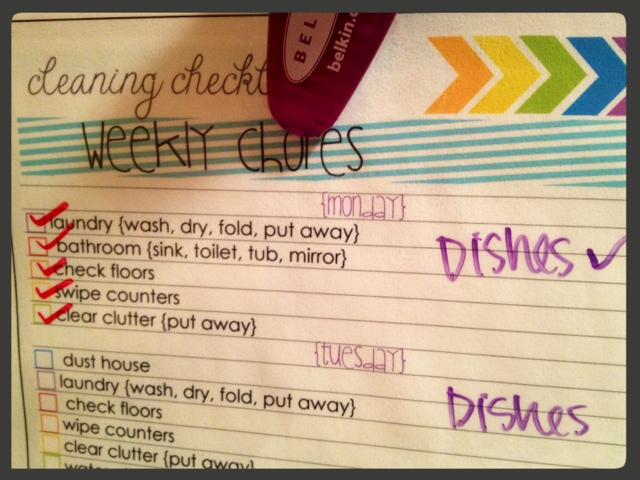 BEL
belkin.c
cleaning checkl
WEEKLY chores
{monday}
laundry {wash, dry, fold, put away}
bathroom {sink, toilet, tub, mirror}
check floors
swipe counters
clear clutter {put away}
Dishes ✓
{tuesday}
dust house
laundry {wash, dry, fold, put away}
check floors
wipe counters
clear clutter {put away}
Dishes